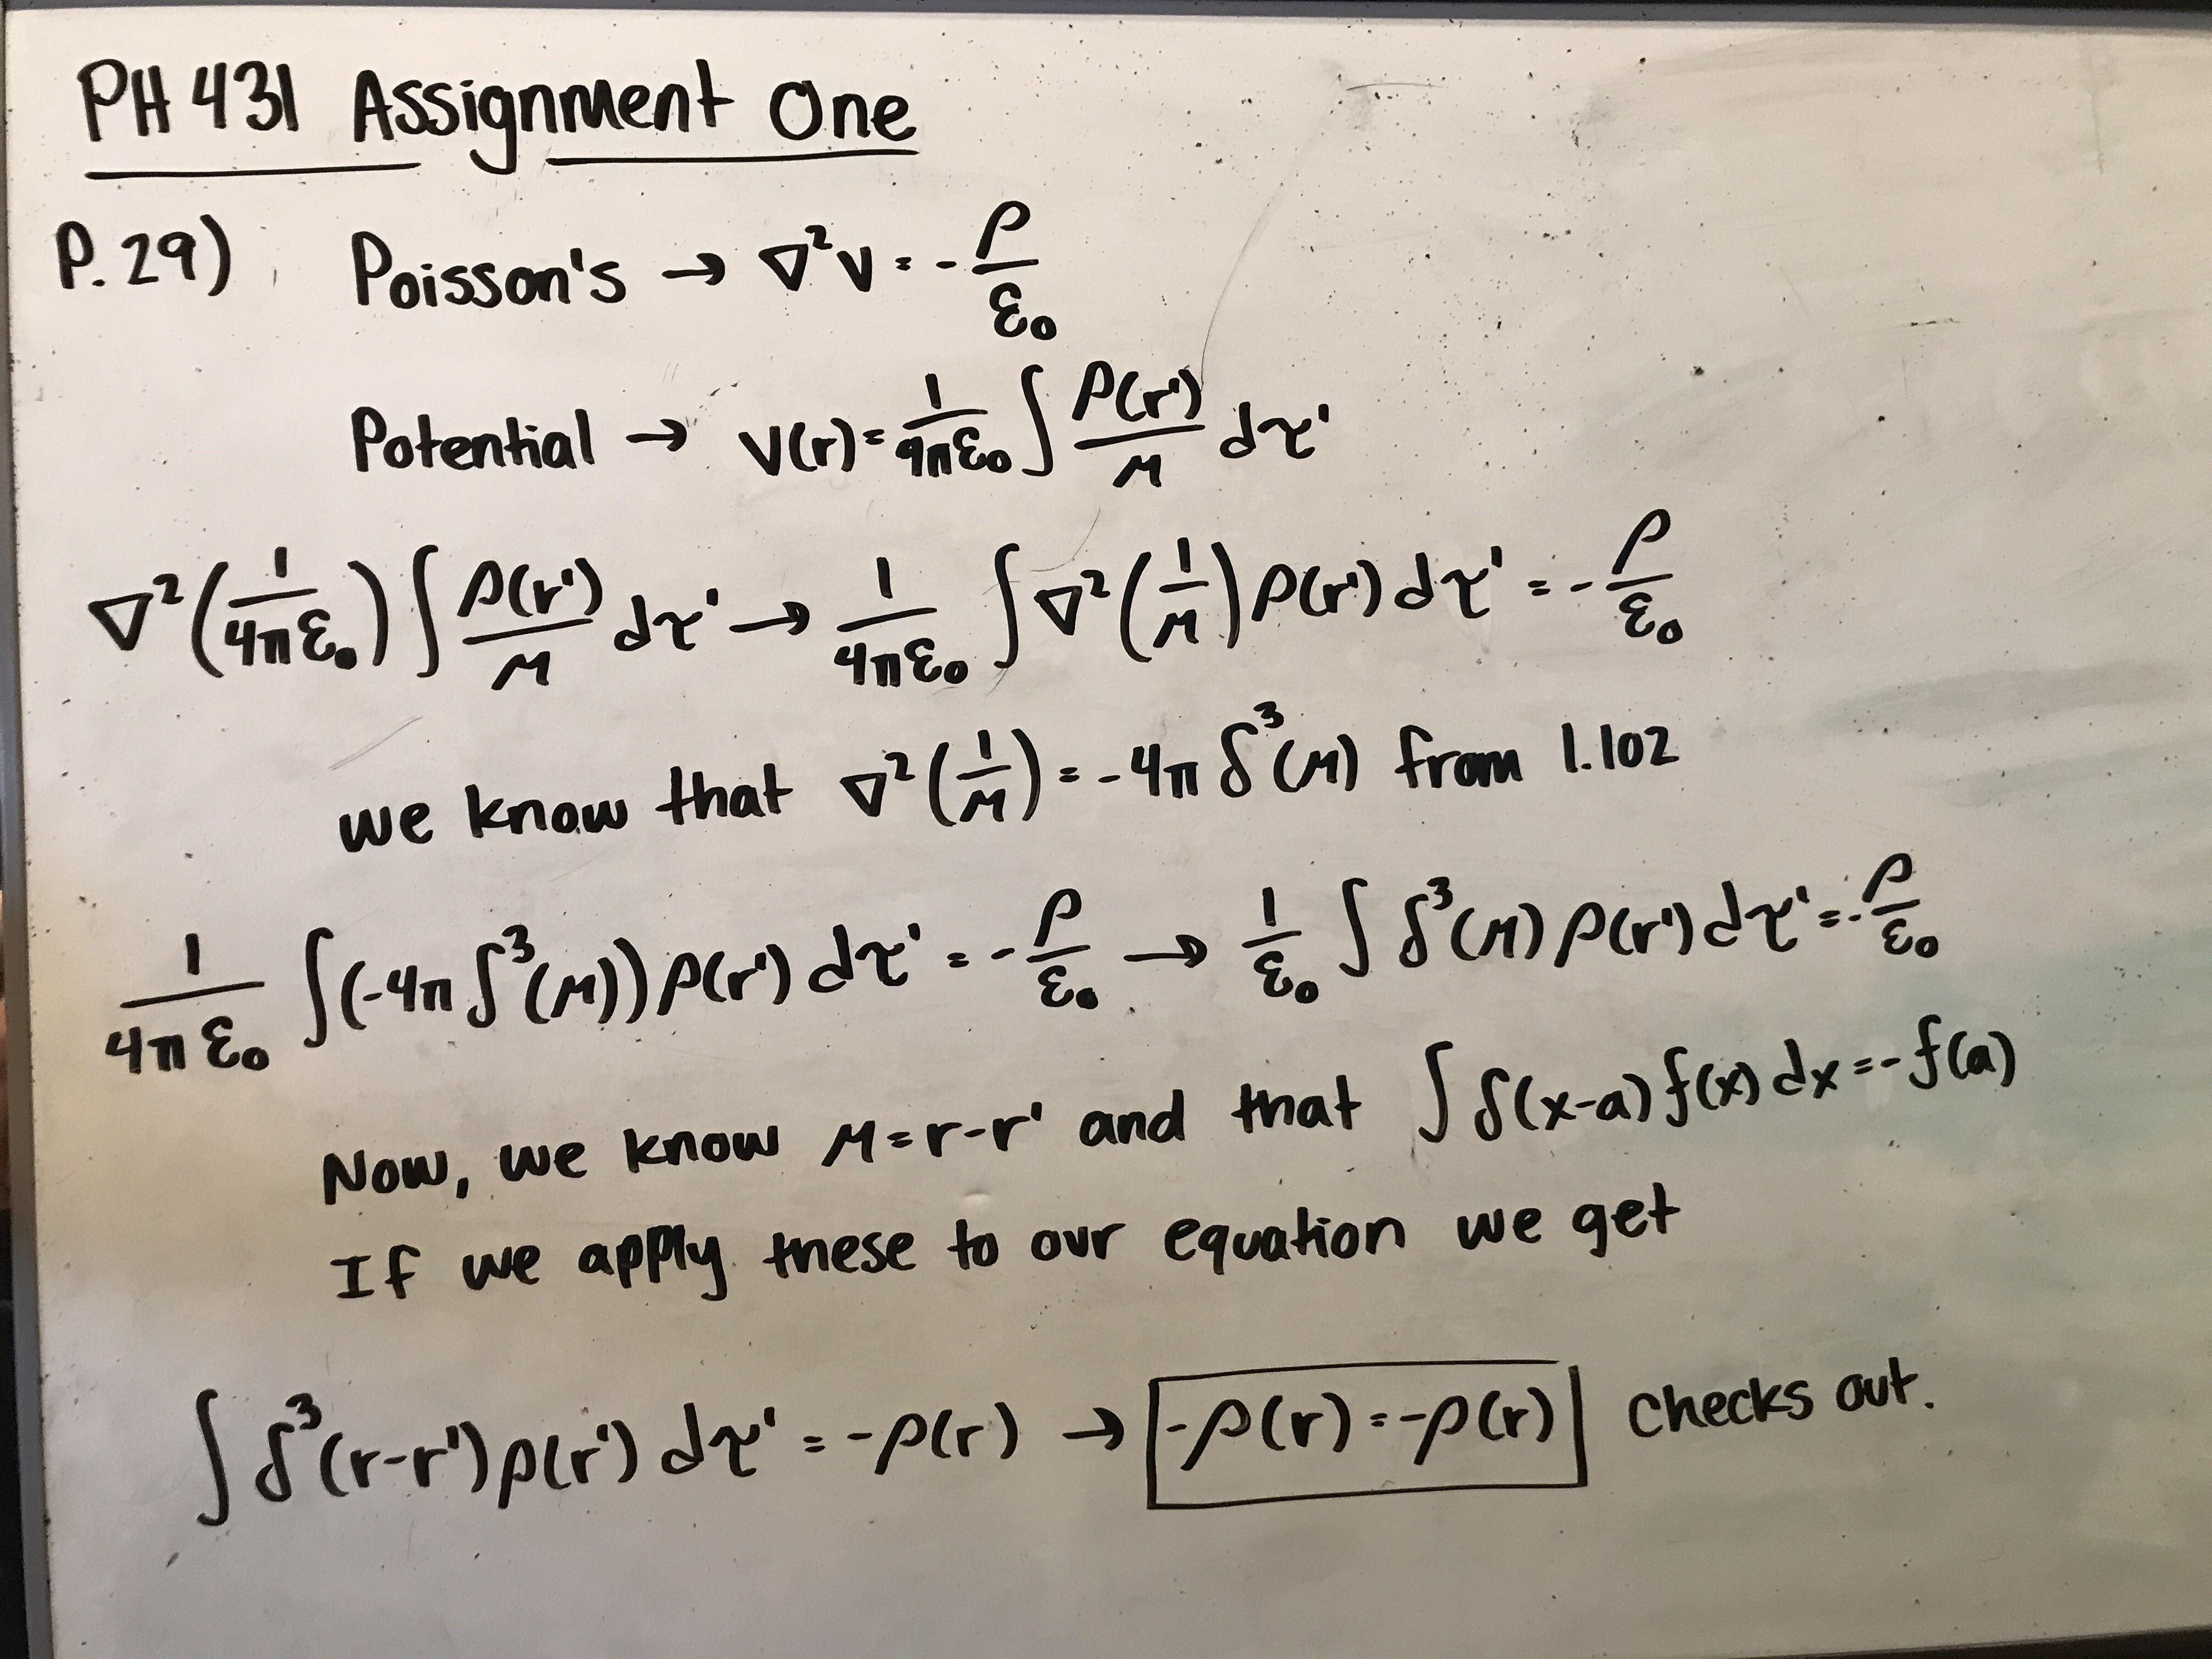 PH 431 Assignment One
P. 29) Poisson's → ∇²V = -ρ/ε₀
Potential → V(r) = 1/4πε₀ ∫ ρ(r')/𝓇 dτ'
∇²(1/4πε₀) ∫ ρ(r')/𝓇 dτ' → 1/4πε₀ ∫ ∇²(1/𝓇) ρ(r') dτ' = -ρ/ε₀
we know that ∇²(1/𝓇) = -4π δ³(𝓇) from 1.102
1/4πε₀ ∫(-4π δ³(𝓇)) ρ(r') dτ' = -ρ/ε₀ → 1/ε₀ ∫ δ³(𝓇) ρ(r') dτ' = -ρ/ε₀
Now, we know 𝓇 = r-r' and that ∫ δ(x-a) f(x) dx = -f(a)
If we apply these to our equation we get
∫ δ³(r-r') ρ(r') dτ' = -ρ(r) → -ρ(r) = -ρ(r) checks out.